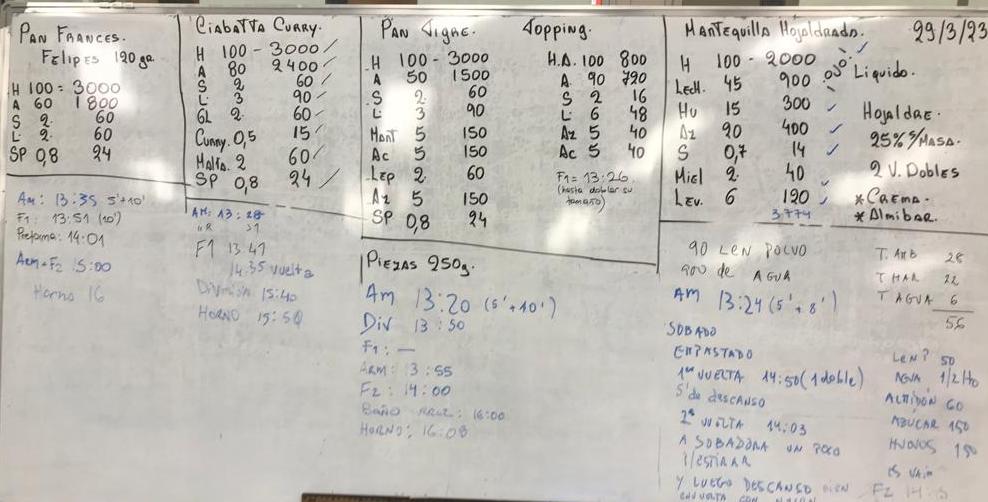 PAN FRANCES.
FELIPES 120 ga.
H 100 = 3000
A 60 1800
S 2 60
L 2 60
SP 0,8 24
Am: 13:35 5'+10'
F1: 13:51 (10')
Preforma: 14:01
ARM+F2 15:00
Horno 16
CiABATTA CURRY.
H 100 - 3000
A 80 2400
S 2 60
L 3 90
GL 2 60
Curry. 0,5 15
Malta. 2 60
SP 0,8 24
AM: 13:28
F1 13:41
14:35 vuelta
División 15:40
HORNO 15:50
PAN TIGRE.
H 100 - 3000
A 50 1500
S 2 60
L 3 90
Mant 5 150
Ac 5 150
Lep 2 60
Az 5 150
SP 0,8 24
TOPPING.
H.A. 100 800
A. 90 720
S 2 16
L 6 48
Az 5 40
Ac 5 40
F1 = 13:26
(hasta doblar su
tamaño)
PIEZAS 250g.
Am 13:20 (5'+10')
Div 13:50
F1: —
ARM: 13:55
F2: 14:00
BAÑO 16:00
HORNO: 16:08
MANTEQUILLA HOJALDRADO.
29/3/23
H 100 - 2000
LecH. 45 900
Hu 15 300
Az 20 400
S 0,7 14
Miel 2 40
Lev. 6 120
3.774
ojo
Liquido.
HOJALDRE.
25% s/MASA.
2 V. Dobles
* CREMA.
* Almibar.
90 LEN POLVO
900 de AGUA
AM 13:24 (5'+8')
SOBADO
EMPASTADO
1ª VUELTA 14:50 (1 doble)
5' de descanso
2ª VUELTA 14:03
A SOBADORA UN POCO
P/ESTIRAR
Y LUEGO DESCANSO BIEN
T. AMB 28
T HAR 22
T AGUA 6
56
LEN P 50
AGUA 1/2
ALMIDÓN 60
AZUCAR 150
HUEVOS 150